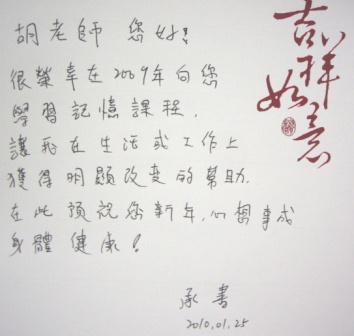 吉祥如意
胡老師 您好!
很榮幸在2009年向您
學習記憶課程,
讓我在生活或工作上
獲得明顯改變的幫助.
在此預祝您新年,心想事成
身體健康!
承書
2010.01.25